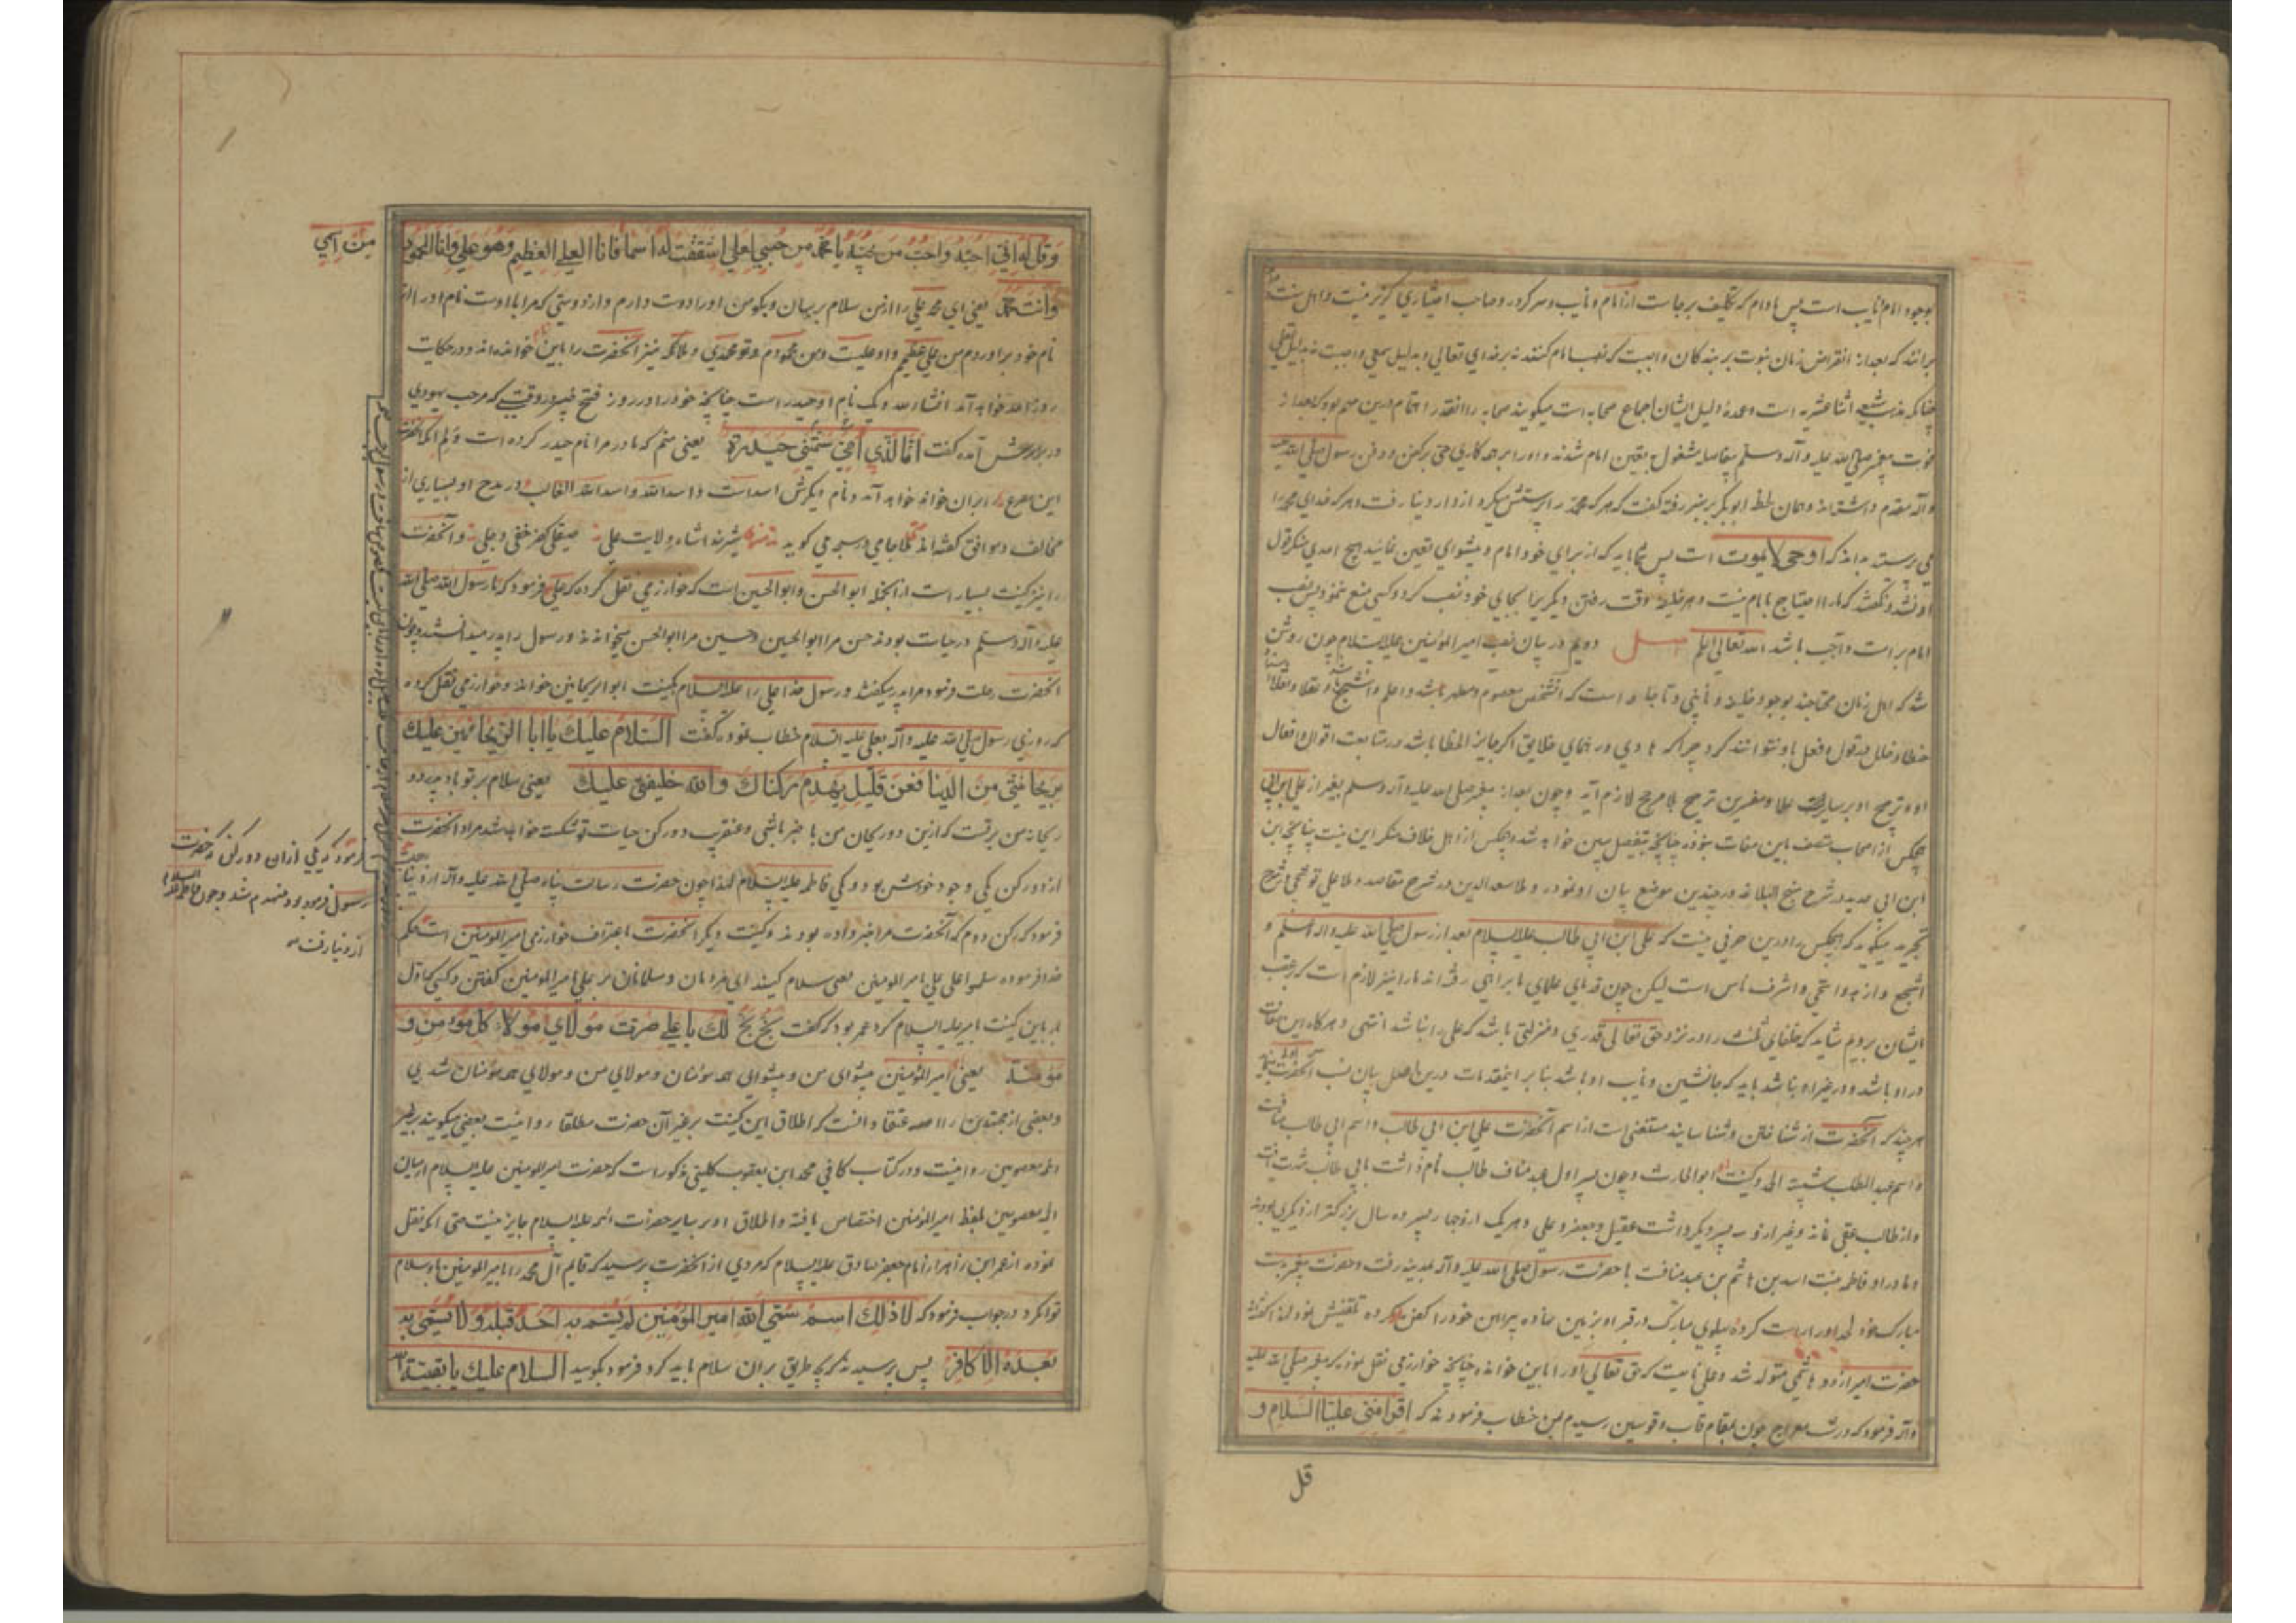 بوجود امام نایب است پس مادام که تکلیف برجاست از امام و نایب و سرکرده و صاحب اختیاری گریز نیست و اهل سنت
برانند که بعد از انقراض زمان نبوت بر بندگان واجبست که نصب امام کنند نه بر خدای تعالی و بدلیل سمعی واجبست نه بدلیل عقلی
چنانکه مذهب شیعه اثنا عشریه است و عمده دلیل ایشان اجماع صحابه است میگویند صحابه را آنقدر اهتمام درین مهم بود که بعد از
فوت پیغمبر صلی الله علیه و آله وسلم بفاصله مشغول بتعین امام شدند و او را بر همه کاری حتی بر کفن و دفن رسول صلی الله علیه
وآله مقدم داشته اند و همان لحظه ابوبکر بر منبر رفته گفت که هر که محمد را پرستش میکرد از دار دنیا رفت و هر که خدای محمد را
می پرستد بداند که او حی لا یموت است پس شما باید که از برای خود امام و پیشوای تعین نمائید هیچ احدی منکر قول
او نشد و نگفتند که ما را احتیاج بامام نیست و هر خلیفه وقت رفتن دیگریرا بجای خود نصب کرد و کسی منع ننمود پس نصب
امام بر امت واجب باشد الله تعالی اعلم اصل دویم در بیان نصب امیر المؤمنین علیه السلام چون روشن
شد که اهل زمان محتاجند بوجود خلیفه و نایبی و است که آنشخص معصوم و مطهر باشد و اعلم و اشجع باشد و نقلا و عقلا
خطا و خلل در قول و فعل او نتوانند کرد چرا که هادی و رهنمای خلایق اگر جایز الخطا باشد در متابعت اقوال و افعال
او و ترجیح او بر سایر امت علما و مفسرین ترجیح بلا مرجح لازم آید و چون بعد از پیغمبر صلی الله علیه و آله وسلم بغیر از علی ابن ابی
هیچکس از اصحاب متصف باین صفات نبودند چنانچه بتفصیل مبین خواهد شد و هیچکس از اهل خلاف منکر این نیست چنانچه ابن
ابن ابی حدید در شرح نهج البلاغه در چندین موضع بیان او نموده و ملا سعد الدین در شرح مقاصد و ملا علی قوشجی در شرح
تجرید میگوید که هیچکس را درین حرفی نیست که علی ابن ابی طالب علیه السلام بعد از رسول صلی الله علیه واله وسلم و
اشجع و ازهد و اتقی و اشرف ناس است لیکن چون قدمای علمای ما براهی رفته اند ما را نیز لازم است که بر عقب
ایشان برویم شاید که خلفای ثلثه را در نزد حق تعالی قدری و منزلتی باشد که علی را نباشد انتهی و هرگاه این صفات
در او باشد و در غیر او نباشد باید که جانشین و نایب او باشد بنا بر اینمقدمات درین اصل بیان نسب آنحضرت
هر چند که آنحضرت از شناختن و شناسایند مستغنی است از اسم آنحضرت علی ابن ابی طالب و اسم ابی طالب مناف
و اسم عبد المطلب شیبة الحمد و کنیت او ابوالحارث و چون پسر اول عبد مناف طالب نام داشت بابی طالب شهرت یافت
و از طالب عقبی نماند و غیر از او سه پسر دیگر داشت عقیل و جعفر و علی و هر یک از و چهار پسر ده سال بزرگتر از دیگری بودند
و مادر او فاطمه بنت اسد بن هاشم بن عبد مناف با حضرت رسول صلی الله علیه و آله بمدینه رفت و حضرت پیغمبر بدست
مبارک خود لحد او راست کرده پهلوی مبارک در قبر او بزمین نهاده پیراهن خود را کفن او کرده تلقینش نمود لهذا گفته اند
حضرت امیر از دو هاشمی متولد شد و علی نامیست که حق تعالی او را باین خوانده چنانچه خوارزمی نقل نموده که پیغمبر صلی الله علیه
وآله فرمود که در شب معراج چون بمقام قاب و قوسین رسیدم بمن خطاب فرمودند که اقرا منی علیا السلام و
قل
وقل له انی احبه واحب من یحبه یا محمد من حبی لعلی اشتققت له اسما فانا العلی العظیم وهو علی وانا المحمود
من اسمی
وانت محمد یعنی ای محمد علی را از من سلام برسان و بگو من او را دوست دارم و از دوستی که مرا با اوست نام او را از
نام خود برآوردم من علی عظیمم و او علیست و من محمودم و تو محمدی و ملائکه نیز آنحضرت را باین نام خوانده اند و در حکایت
روز احد خواهد آمد انشاء الله و یک نام او حیدر است چنانچه خود را در روز فتح خیبر در وقتی که مرحب یهودی
در برابرش آمده گفت انا الذی امی سمتنی حیدرة یعنی منم که مادر مرا نام حیدر کرده است
این مصرع را بر آن خوانده خواهد آمد و نام دیگرش اسد است و اسد الله و اسد الله الغالب و در مدح او بسیاری از
مخالف و موافق گفته اند ملا جامی در سبحه می گوید
را نیز کنیت بسیار است از انجمله ابو الحسن و ابو الحسین است که خوارزمی نقل کرده که علی فرمود که تا رسول الله صلی الله
علیه وآله وسلم در حیات بودند حسن مرا ابو الحسین و حسین مرا ابو الحسن میخواندند و رسول را پدر میدانستند و چون
آنحضرت رحلت فرمود مرا پدر میگفتند و رسول خدا علی را علیه السلام بکنیت ابو الریحانتین خوانده و خوارزمی نقل کرده
که روزی رسول صلی الله علیه وآله بعلی علیه السلام خطاب نموده گفت السلام علیک یا ابا الریحانتین علیک
بریحانتی من الدنیا فعن قلیل یهدم رکناک والله خلیفتی علیک یعنی سلام بر تو باد پدر دو
ریحانه من برقت که ازین دو ریحان من با خبر باشی و عنقریب دو رکن حیات تو شکست خواهد شد مراد آنحضرت
از دو رکن یکی وجود خودش بود و یکی فاطمه علیها السلام لهذا چون حضرت رسالت پناه صلی الله علیه وآله از دنیا رفت
فرمود که یکی ازان دو رکن که حضرت
رسول فرموده بود منهدم شد و چون فاطمه علیها السلام
از دنیا رفت
فرمود که رکن دوم که آنحضرت مرا خبر داده بودند و کنیت دیگر آنحضرت باعتراف خوارزمی امیر المومنین است که بحکم
خدا فرموده سلموا علی علی بامیر المومنین یعنی سلام کنید ای مردمان و مسلمانان بر علی بامیر المومنین گفتن و کسی که اول
بار باین کنیت امیر علیه السلام کرد عمر بود که گفت بخ بخ لک یا علی صرت مولای ومولاء کل مؤمن و
مومنة یعنی امیر المؤمنین پیشوای من و پیشوای همه مؤمنان و مولای من و مولای همه مؤمنان شدی
و بعضی از مجتهدین را عقیده آنست که اطلاق این کنیت بر غیر آن حضرت مطلقا روا نیست بعضی میگویند بر غیر
ائمه معصومین روا نیست و در کتاب کافی محمد ابن یعقوب کلینی مذکور است که حضرت امیر المومنین علیه السلام از میان
ائمه معصومین بلفظ امیر المؤمنین اختصاص یافته و اطلاق او بر سایر حضرات ائمه علیه السلام جایز نیست حتی آنکه نقل
نموده از عمر ابن زاهر از امام جعفر صادق علیه السلام که مردی از آنحضرت پرسید که قایم آل محمد را بامیر المومنین سلام
توان کرد در جواب فرمود که لا ذلک اسم سمی الله امیر المؤمنین لم یسم به احد قبله ولا یتسمی به
بعده الا کافر پس پرسید که بچه طریق بر ان سلام باید کرد فرمود بگوئید السلام علیک یا بقیة الله